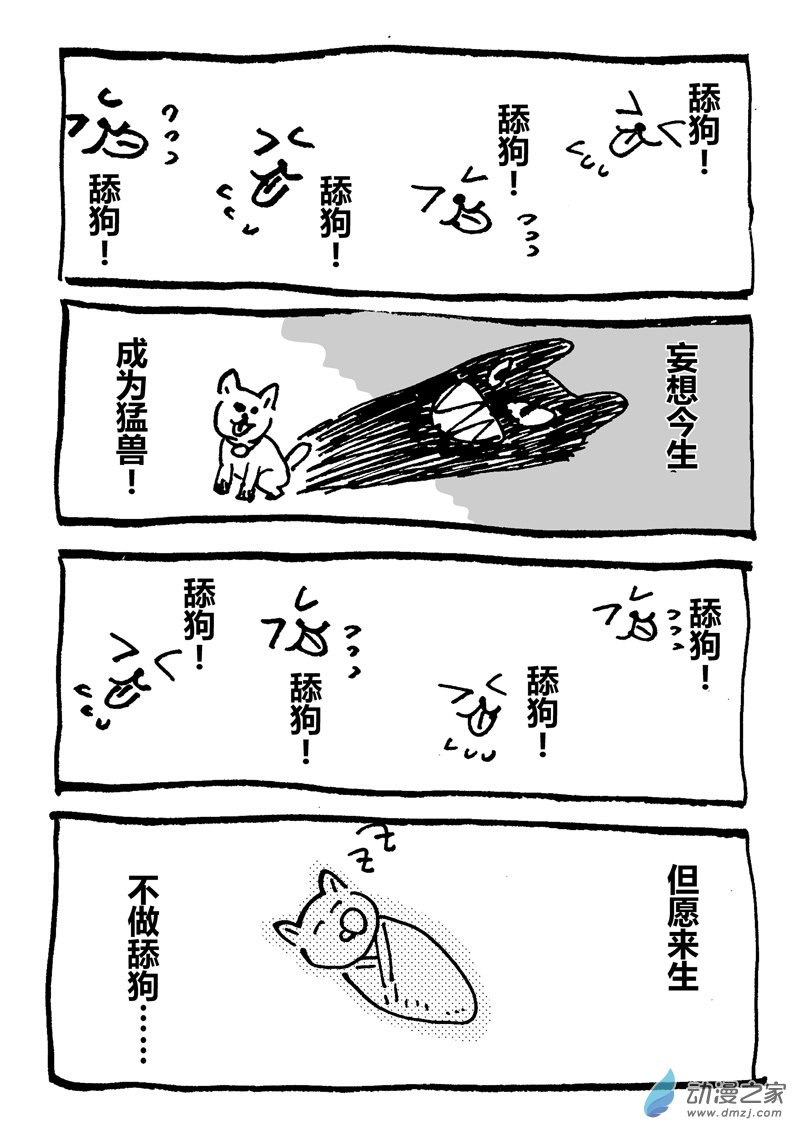 舔狗！
舔狗！
舔狗！
舔狗！
妄想今生
成为猛兽！
舔狗！
舔狗！
舔狗！
舔狗！
但愿来生
不做舔狗……
动漫之家
www.dmzj.com